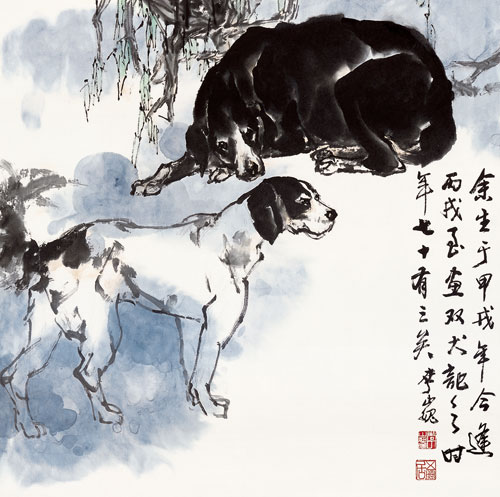 余生于甲戌年今逢
丙戌又画双犬记之时
年七十有三矣 李山